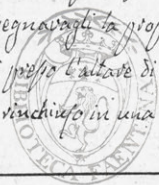 egnavagli la prop
i presso l'altare di
rinchiuso in una
BIBLIOTECA FAENTINA